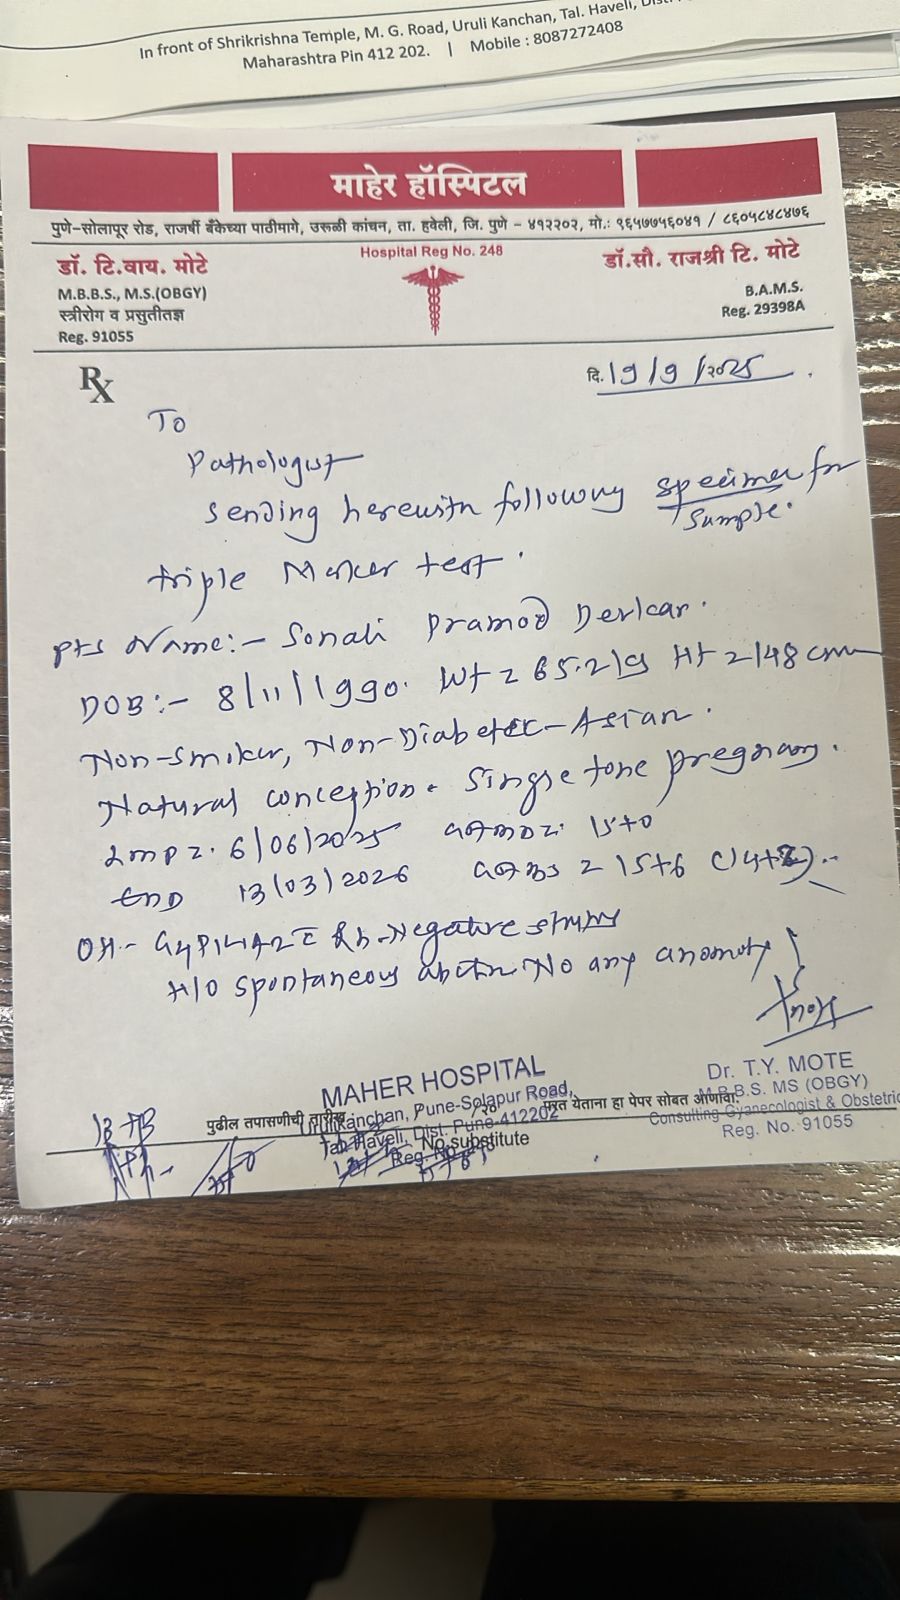 In front of Shrikrishna Temple, M. G. Road, Uruli Kanchan, Tal. Haveli,
Maharashtra Pin 412 202. | Mobile : 8087272408
माहेर हॉस्पिटल
पुणे-सोलापूर रोड, राजर्षी बँकेच्या पाठीमागे, उरूळी कांचन, ता. हवेली, जि. पुणे - ४१२२०२, मो.: ९६५७७५६०४१ / ८६०५८४८४७६
Hospital Reg No. 248
डॉ. टि.वाय. मोटे
M.B.B.S., M.S.(OBGY)
स्त्रीरोग व प्रसुतीतज्ञ
Reg. 91055
डॉ.सौ. राजश्री टि. मोटे
B.A.M.S.
Reg. 29398A
Rx
दि. 19/9/२०२५
To
Pathologist
Sending herewith following specimen for
Sample.
triple Marker test.
Pts Name:- Sonali Pramod Derkar.
DOB:- 8/11/1990. Wt = 65.2kg Ht = 148 cm
Non-smoker, Non-Diabetec-Asian.
Natural conception. Singletone pregnancy.
Lmp =. 6/06/2025 15+0
EDD 13/03/2026 = 15+6
OH:- Rh-Negative
H/O spontaneous No any anomaly
MAHER HOSPITAL
Uruli Kanchan, Pune-Solapur Road,
Tal. Haveli, Dist. Pune-412202
Reg. No.
Dr. T.Y. MOTE
M.B.B.S. MS (OBGY)
Consulting Gyanecologist & Obstetric
Reg. No. 91055
पुढील तपासणीची तारीख / /२० परत येताना हा पेपर सोबत आणावा.
No substitute